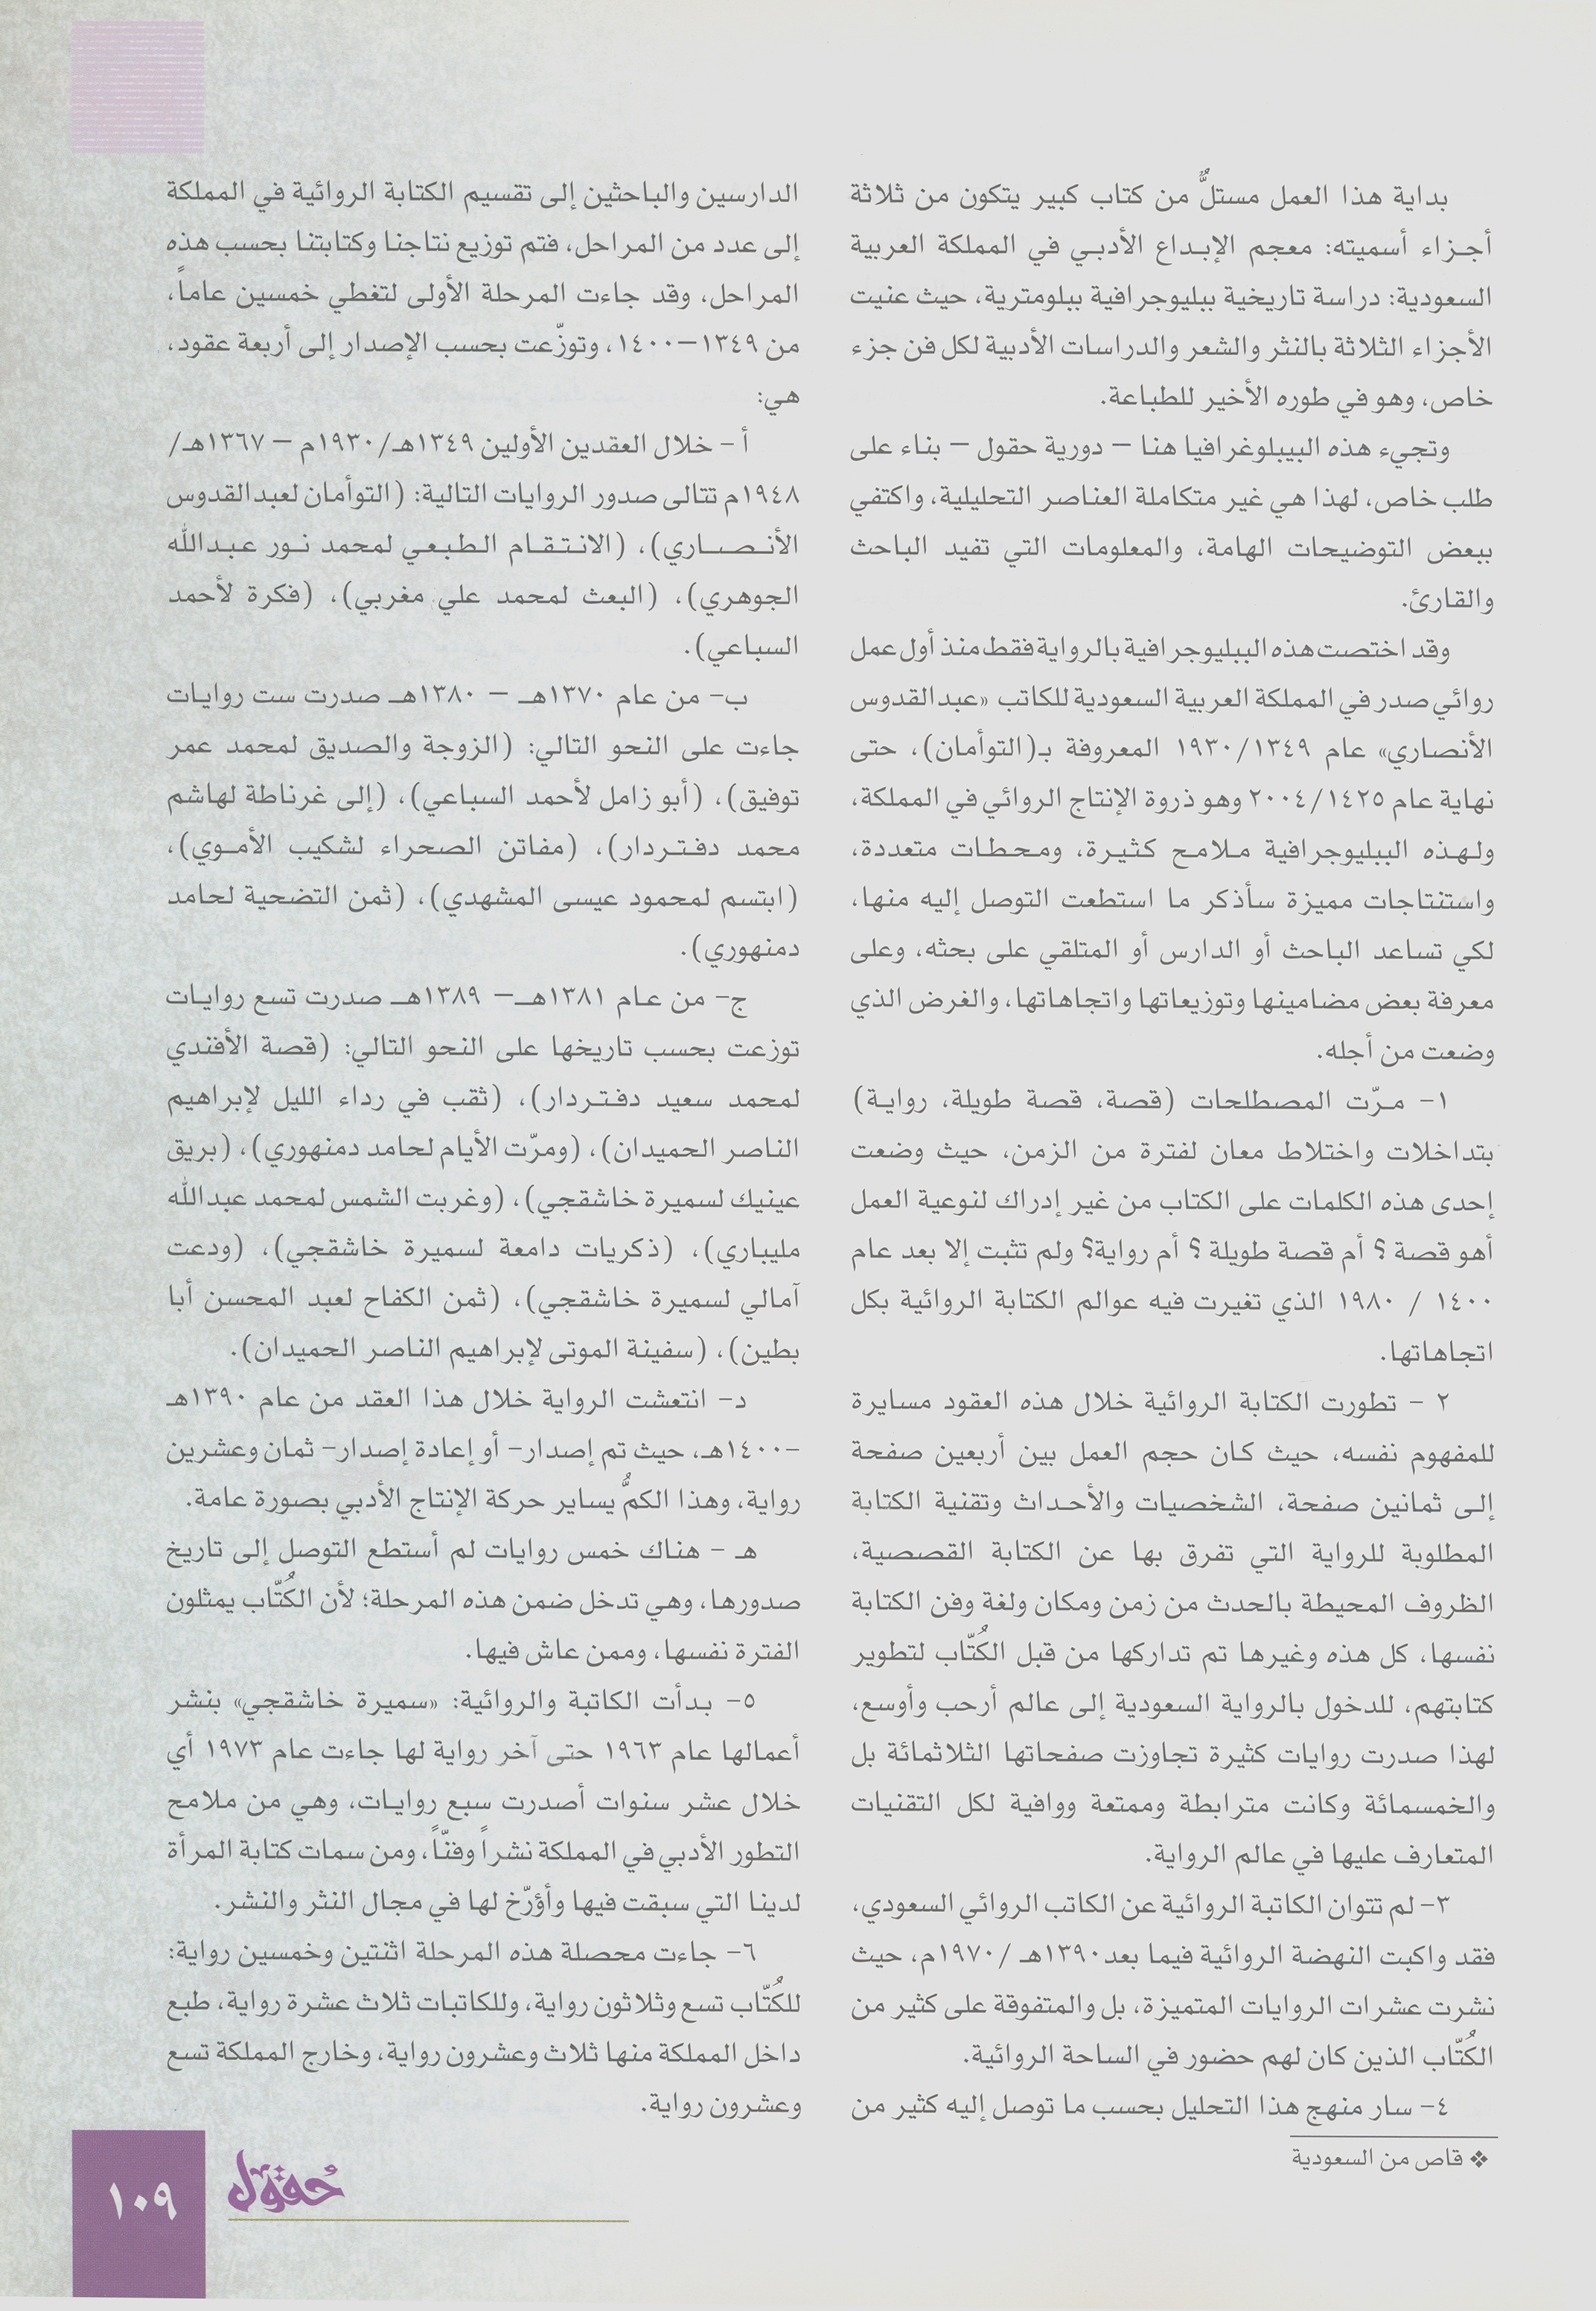 بداية هذا العمل مستلٌّ من كتاب كبير يتكون من ثلاثة
أجـزاء أسميته: معجم الإبـداع الأدبـي في المملكة العربية
السعودية: دراسة تاريخية ببليوجرافية ببلومترية، حيث عنيت
الأجزاء الثلاثة بالنثر والشعر والدراسات الأدبية لكل فن جزء
خاص، وهو في طوره الأخير للطباعة.
وتجيء هذه البيبلوغرافيا هنا – دورية حقول – بناء على
طلب خاص، لهذا هي غير متكاملة العناصر التحليلية، واكتفي
ببعض التوضيحات الهامة، والمعلومات التي تفيد الباحث
والقارئ.
وقد اختصت هذه الببليوجرافية بالرواية فقط منذ أول عمل
روائي صدر في المملكة العربية السعودية للكاتب «عبدالقدوس
الأنصاري» عام ١٩٣٠/١٣٤٩ المعروفة بـ(التوأمان)، حتى
نهاية عام ٢٠٠٤/١٤٢٥ وهو ذروة الإنتاج الروائي في المملكة،
ولـهـذه الببليوجرافية مـلامـح كثـيـرة، ومـحـطـات متعددة،
واستنتاجات مميزة سأذكر ما استطعت التوصل إليه منها،
لكي تساعد الباحث أو الدارس أو المتلقي على بحثه، وعلى
معرفة بعض مضامينها وتوزيعاتها واتجاهاتها، والغرض الذي
وضعت من أجله.
١- مـرّت المصطلحات (قصة، قصة طويلة، روايـة)
بتداخلات واختلاط معان لفترة من الزمن، حيث وضعت
إحدى هذه الكلمات على الكتاب من غير إدراك لنوعية العمل
أهو قصة ؟ أم قصة طويلة ؟ أم رواية؟ ولم تثبت إلا بعد عام
١٤٠٠ / ١٩٨٠ الذي تغيرت فيه عوالم الكتابة الروائية بكل
اتجاهاتها.
٢ - تطورت الكتابة الروائية خلال هذه العقود مسايرة
للمفهوم نفسه، حيث كـان حجم العمل بين أربعين صفحة
إلـى ثمانين صفحة، الشخصيات والأحـداث وتقنية الكتابة
المطلوبة للرواية التي تفرق بها عن الكتابة القصصية،
الظروف المحيطة بالحدث من زمن ومكان ولغة وفن الكتابة
نفسها، كل هذه وغيرها تم تداركها من قبل الكُتّاب لتطوير
كتابتهم، للدخول بالرواية السعودية إلى عالم أرحب وأوسع،
لهذا صدرت روايات كثيرة تجاوزت صفحاتها الثلاثمائة بل
والخمسمائة وكانت مترابطة وممتعة ووافية لكل التقنيات
المتعارف عليها في عالم الرواية.
٣- لم تتوان الكاتبة الروائية عن الكاتب الروائي السعودي،
فقد واكبت النهضة الروائية فيما بعد١٣٩٠هـ /١٩٧٠م، حيث
نشرت عشرات الروايات المتميزة، بل والمتفوقة على كثير من
الكُتّاب الذين كان لهم حضور في الساحة الروائية.
٤- سار منهج هذا التحليل بحسب ما توصل إليه كثير من
❖ قاص من السعودية
الدارسين والباحثين إلى تقسيم الكتابة الروائية في المملكة
إلى عدد من المراحل، فتم توزيع نتاجنا وكتابتنا بحسب هذه
المراحل، وقد جاءت المرحلة الأولى لتغطي خمسين عاماً،
من ١٣٤٩–١٤٠٠، وتوزّعت بحسب الإصدار إلى أربعة عقود،
هي:
أ - خلال العقدين الأولين ١٣٤٩هـ/١٩٣٠م – ١٣٦٧هـ/
١٩٤٨م تتالى صدور الروايات التالية: (التوأمان لعبدالقدوس
الأنـصـــاري)، (الانـتـقـام الـطـبـعـي لمحمد نـور عـبـدالله
الجوهري)، (البعث لمحمد علي مغربي)، (فكرة لأحمد
السباعي).
ب- من عام ١٣٧٠هـ – ١٣٨٠هـ صدرت ست روايات
جاءت على النحو التالي: (الزوجة والصديق لمحمد عمر
توفيق)، (أبو زامل لأحمد السباعي)، (إلى غرناطة لهاشم
محمد دفـتـردار)، (مفاتن الصحراء لشكيب الأمـوي)،
(ابتسم لمحمود عيسى المشهدي)، (ثمن التضحية لحامد
دمنهوري).
ج- من عـام ١٣٨١هـ– ١٣٨٩هـ صدرت تسع روايـات
توزعت بحسب تاريخها على النحو التالي: (قصة الأفندي
لمحمد سعيد دفـتـردار)، (ثقب في رداء الليل لإبراهيم
الناصر الحميدان)، (ومرّت الأيام لحامد دمنهوري)، (بريق
عينيك لسميرة خاشقجي)، (وغربت الشمس لمحمد عبدالله
مليباري)، (ذكريات دامعة لسميرة خاشقجي)، (ودعت
آمالي لسميرة خاشقجي)، (ثمن الكفاح لعبد المحسن أبا
بطين)، (سفينة الموتى لإبراهيم الناصر الحميدان).
د- انتعشت الرواية خلال هذا العقد من عام ١٣٩٠هـ
-١٤٠٠هـ، حيث تم إصدار- أو إعادة إصدار- ثمان وعشرين
رواية، وهذا الكمُّ يساير حركة الإنتاج الأدبي بصورة عامة.
هـ - هناك خمس روايات لم أستطع التوصل إلى تاريخ
صدورها، وهي تدخل ضمن هذه المرحلة؛ لأن الكُتّاب يمثلون
الفترة نفسها، وممن عاش فيها.
٥- بـدأت الكاتبة والروائية: «سميرة خاشقجي» بنشر
أعمالها عام ١٩٦٣ حتى آخر رواية لها جاءت عام ١٩٧٣ أي
خلال عشر سنوات أصدرت سبع روايـات، وهي من ملامح
التطور الأدبي في المملكة نشراً وفنّاً، ومن سمات كتابة المرأة
لدينا التي سبقت فيها وأؤرّخ لها في مجال النثر والنشر.
٦- جاءت محصلة هذه المرحلة اثنتين وخمسين رواية:
للكُتّاب تسع وثلاثون رواية، وللكاتبات ثلاث عشرة رواية، طبع
داخل المملكة منها ثلاث وعشرون رواية، وخارج المملكة تسع
وعشرون رواية.
حُقول
١٠٩